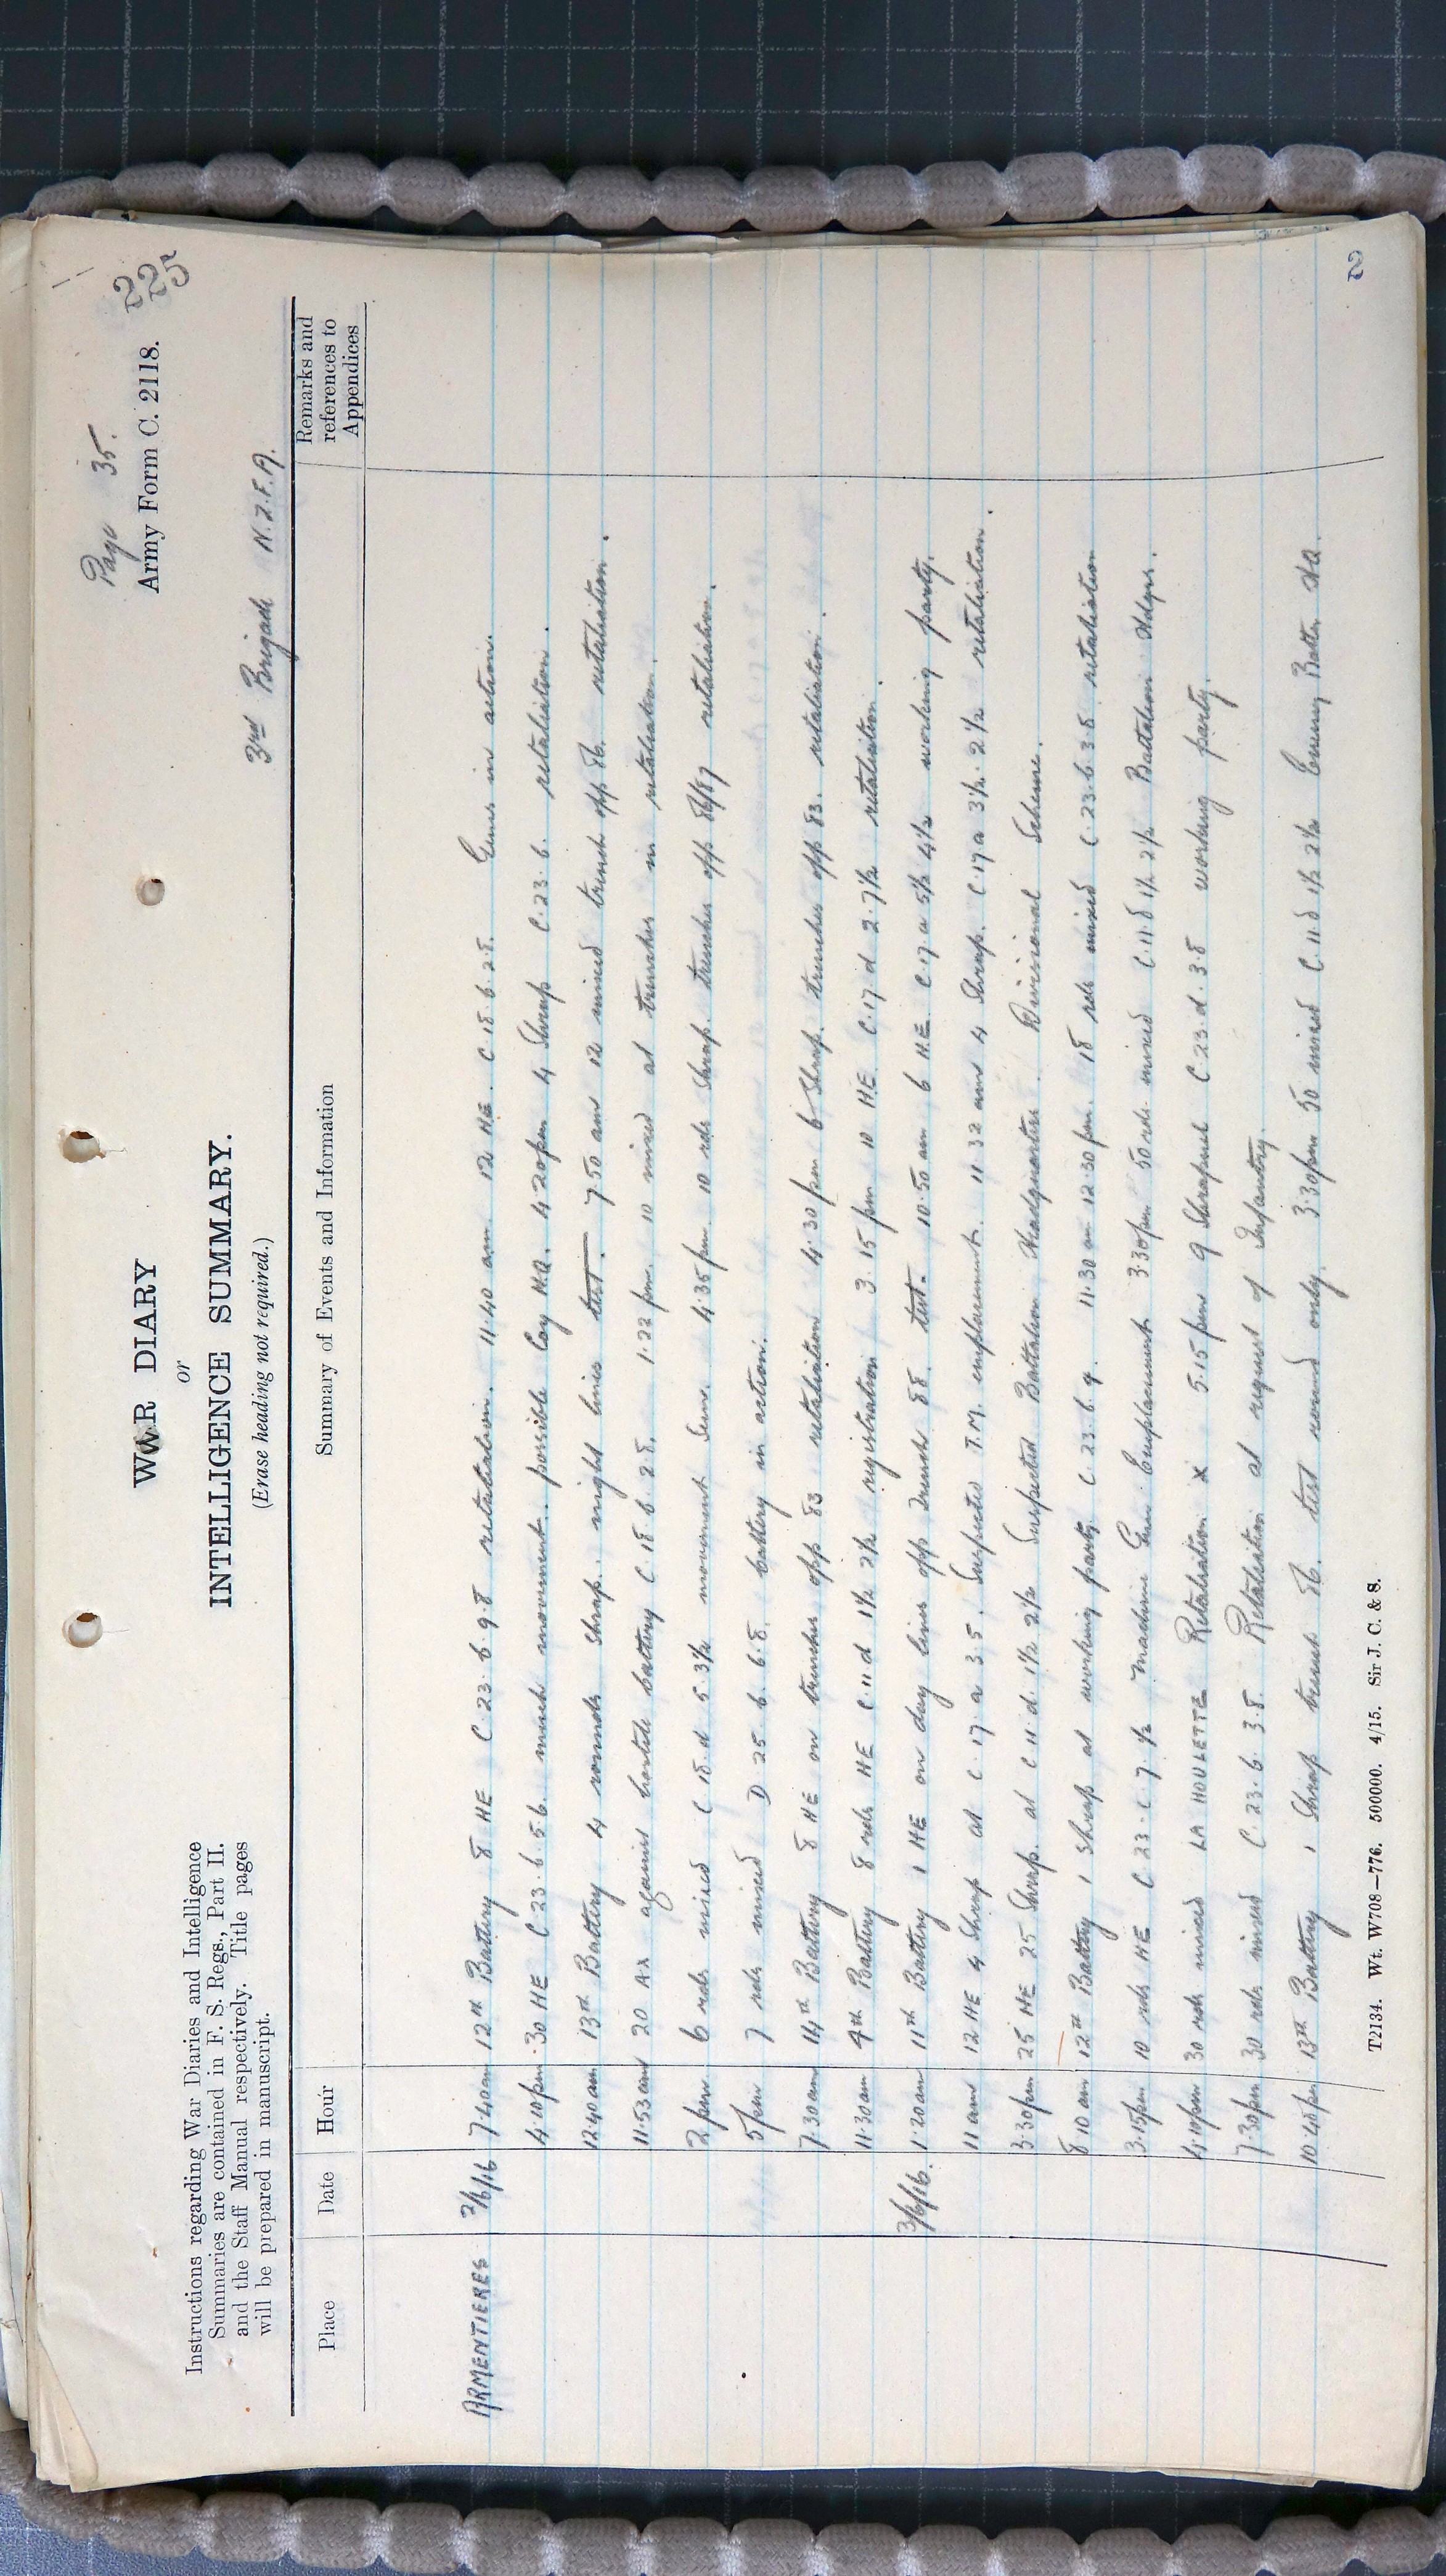 Page 35.
225
Army Form C. 2118.
WAR DIARY
or
INTELLIGENCE SUMMARY.
(Erase heading not required.)
3rd Brigade N.Z.F.A.
Instructions regarding War Diaries and Intelligence
Summaries are contained in F. S. Regs., Part II.
and the Staff Manual respectively. Title pages
will be prepared in manuscript.
Place Date Hour Summary of Events and Information Remarks and references to Appendices
ARMENTIERES 2/6/16 7.40 am 12th Battery 8 HE C.23.b.9.8 retaliation. 11.40 am. 12 HE. C.18.b.2.8. Guns in action.
4.10pm 30 HE C.23.b.5.6. much movement. possible Coy H.Q. 4.20pm 4 Shrap C.23.b. retaliation.
12.40 am 13th Battery 4 rounds shrap. night lines test. 7.50 am 12 mixed trench opp 86. retaliation.
11.53 am 20 AX against hostile battery C.18.b.2.8. 1.22 pm. 10 mixed at trenches in retaliation.
2 pm 6 rds mixed C.18.d 5.3½ movement seen. 4.35pm 10 rds Shrap. trenches opp 86/87 retaliation.
5pm 7 rds mixed D.25.b.6.8. battery in action.
7.30 am 14th Battery 8 HE on trenches opp 83 retaliation 4.30pm 6 Shrap. trenches opp 83. retaliation.
11.30 am 4th Battery 8 rds HE C.11.d 1½ 2½ registration 3.15pm 10 HE C.17.d 2.7½ retaliation.
3/6/16. 1.20 am 11th Battery 1 HE on day lines opp Trench 88. test. 10.50 am 6 HE C.17.a 5½ 4½ working party.
11 am 12 HE 4 Shrap at C.17.a.3.5. Suspected T.M. emplacement. 11.32 am 4 Shrap. C.17a 3½.2½ retaliation.
3.30pm 25 HE 25 Shrap. at C.11.d.1½ 2½ Suspected Battalion Headquarters. Divisional Scheme.
8.10 am 12th Battery 1 shrap at working party C.23.b.9. 11.30 am 12.30pm. 18 rds mixed C.23.b.3.8 retaliation
3.15pm 10 rds HE C.23.c.7.½ Machine Gun Emplacement 3.30pm 50 rds mixed C.11.d 1½ 2½ Battalion Hdqrs.
4.10pm 30 rds mixed LA HOULETTE Retaliation x 5.15pm 9 Shrapnel C.23.d.3.8 working party.
7.30pm 30 rds mixed C.23.b.3.8. Retaliation at request of Infantry.
10.40pm 13th Battery 1 Shrap trench 86. test round only. 3.30pm 50 mixed C.11.d 1½ 2½ Enemy Battn HQ.
T2134. Wt. W708—776. 500000. 4/15. Sir J. C. & S.
2